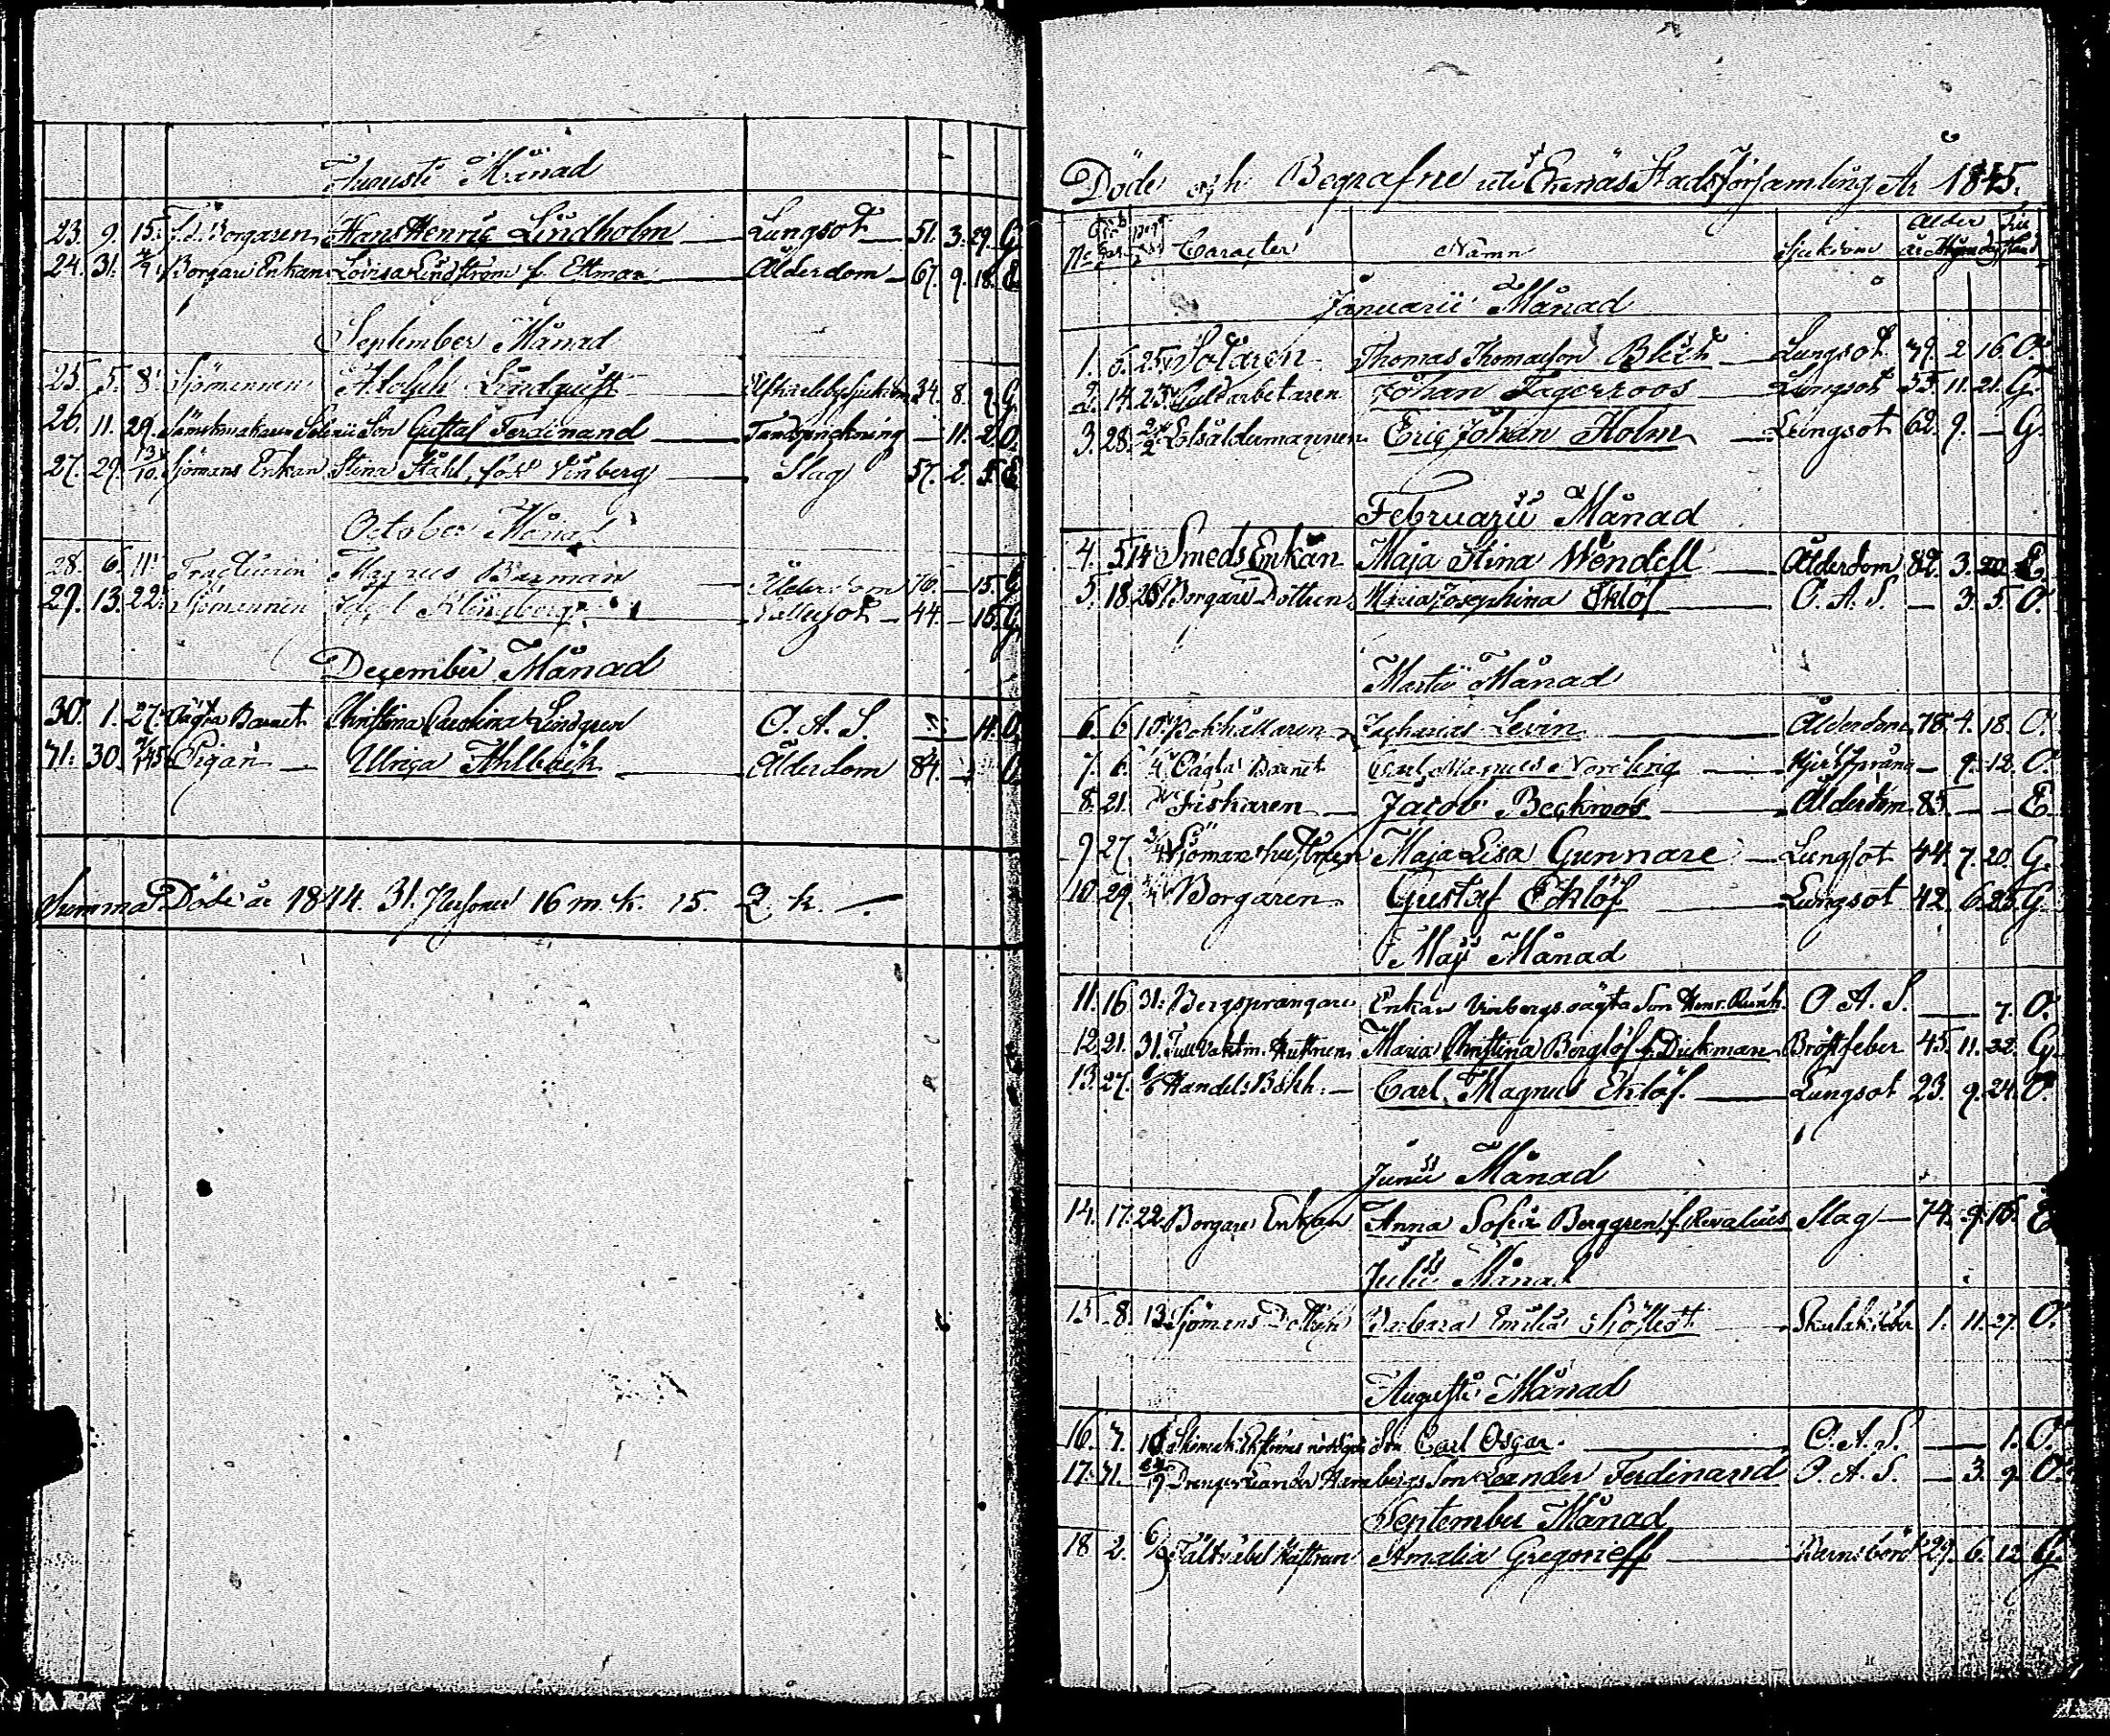 Augusti Månad
23. 9. 15. f.d. Borgaren Hans Henric Lindholm Lungsot 51. 3. 29. G.
24. 31. Borgare Enkan Lovisa Lindström f. Ettman Ålderdom 67. 9. 18. E
September Månad
25. 5. 8. Sjömannen Adolph Lindquist 34. 8. G.
26. 11. 29. Son Gustaf Ferdinand Tandsprickning — 11. 2. O.
27. 29. 13/10. Sjömans Enkan Stina Ståhl, född Vinberg Slag 57. 2. 5. E
October Månad
28. 6. 11. Magnus Barman Ålderdom 76. — 15. G
29. 13. 22. Sjömannen 44. — 15. G.
December Månad
30. 1. 27. Oägta Barnet Christina Carolina Lindgren O. A. S. 14. O.
31. 30. Pigan — Ulrica Ahlbäck Ålderdom 84.
Summa Döde år 1844. 31. Personer 16 m. k. 15. Q. k. —.
Döde och Begrafne uti Ekenäs Stads Församling År 1845.
No Caracter Namn Sjukdom Ålder
Januarii Månad
1. 6. 25. Sotaren Thomas Thomasson Bläck Lungsot 49. 2. 16. O.
2. 14. 23. Guldarbetaren Johan Fagerroos Lungsot 55. 11. 21. G.
3. 28. 2/2 Lotsåldermannen Eric Johan Holm Lungsot 62. 9. — G.
Februarii Månad
4. 5. 14. Smeds Enkan Maja Stina Wendell Ålderdom 82. 3. 20. E.
5. 18. 26. Borgare Dottren Maria Josephina Eklöf O. A. S. — 3. 5. O.
Martii Månad
6. 6. 10. Bokhållaren Zacharias Levin Ålderdom 78. 4. 18. O.
7. 6. Oägta Barnet Carl Magnus Nordling — 9. 12. O.
8. 21. Fiskaren Jacob Beckroos Ålderdom 85. — — E.
9. 27. Sjömans hustrun Maja Lisa Gunnare Lungsot 44. 7. 20. G.
10. 29. Borgaren Gustaf Eklöf Lungsot 42. 6. 25. G.
Maji Månad
11. 16. 31. Bergsprängare Enkan Vinbergs oägta Son O. A. S. — 7. O.
12. 21. 31. Tullvaktm. Hustrun Maria Christina Berglöf f. Dickman Bröstfeber 45. 11. 22. G.
13. 27. Handels Bokh. — Carl Magnus Eklöf. Lungsot 23. 9. 24. O.
Junii Månad
14. 17. 22. Borgare Enkan Anna Sofia Berggren, f. Revalius Slag — 74. 9. 16. E
Julii Månad
15. 8. 13. Sjömans Dottren Barbara Emilia 1. 11. 27. O.
Augusti Månad
16. 7. 10. Son Carl Oscar. O. A. S. — 1. O.
17. 31. Drengen Leander Hambergs Son Leander Ferdinand O. A. S. — 3. 9. O.
September Månad
18. 2. 6/9 Fältväbel Hustrun Amalia Gregorieff Barnsbörd 29. 6. 12. G.